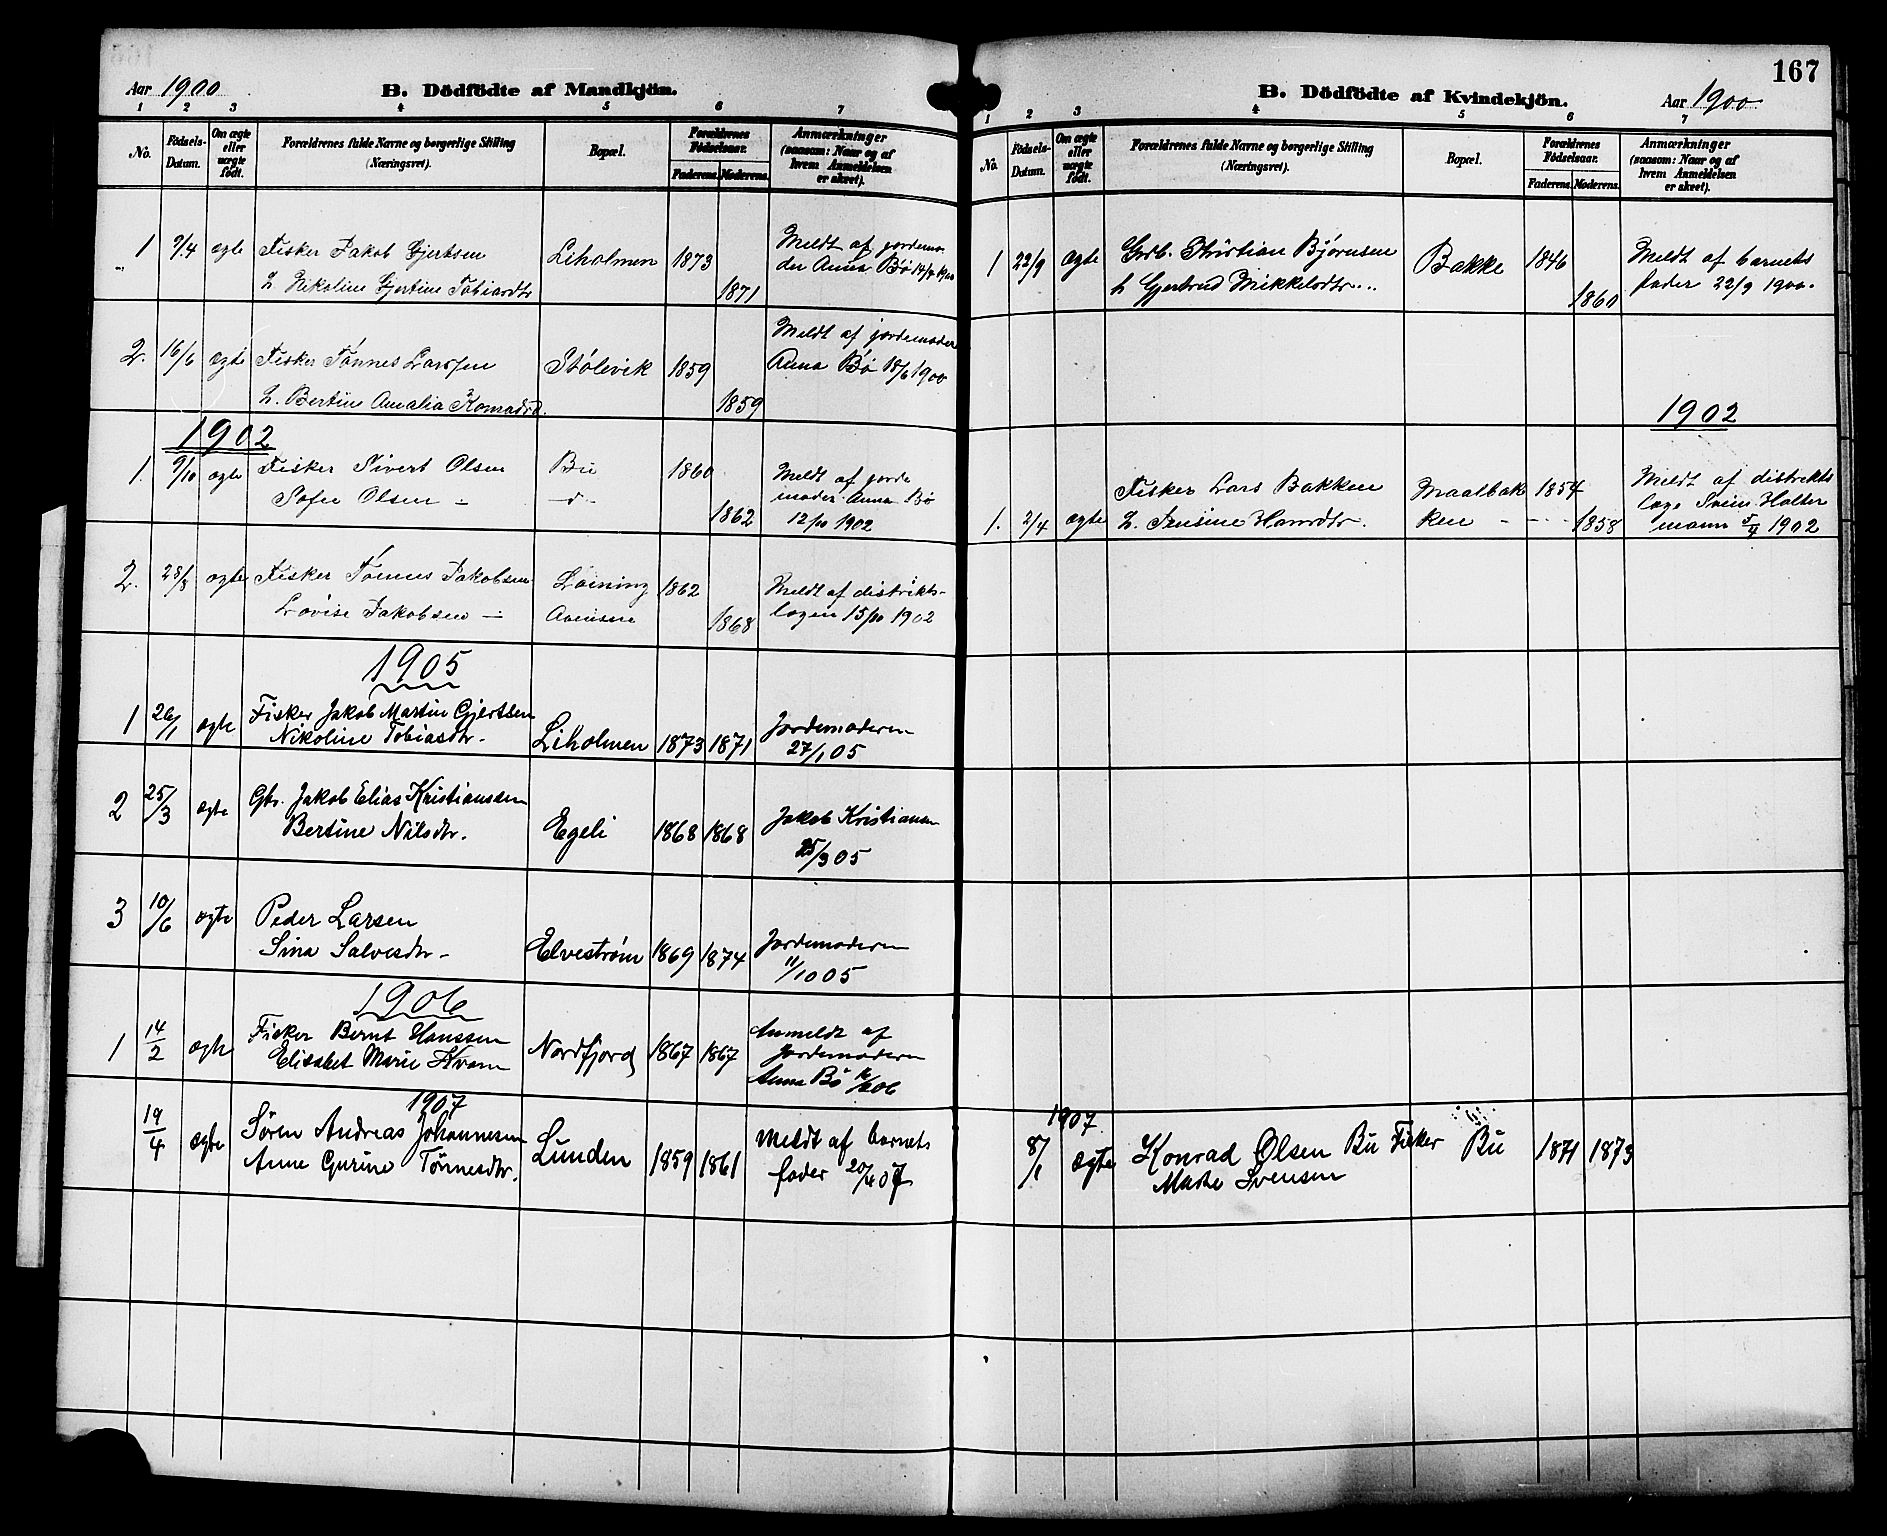 Aar 1900
B. Dödfödte af Mandkjön.
1 2 3 4 5 6 7
No.
Födsels-Datum.
Om ægte eller uægte födt.
Forældrenes fulde Navne og borgerlige Stilling (Næringsvei).
Bopæl.
Forældrenes Födselsaar.
Faderens. Moderens.
Anmærkninger (saasom: Naar og af hvem Anmeldelsen er skeet).
1 9/4 ægte Fisker Jakob Gjertsen Liholmen 1873 Meldt af jordemo-
Nikoline Gjertine Tobiasdtr 1871 der Anna Bø
2. 16/6 ægte Fisker Tönnes Larssen Stölevik 1859 Meldt af jordemoder
Bertine Amalia Konradsd. 1859 Anna Bø 18/6 1900
1902
1. 9/10 ægte Fisker Sivert Olsen Bu 1860 Meldt af jorde
Sofie Olsen 1862 moder Anna Bø
12/10 1902
2. 28/8 ægte Fisker Tönnes Jakobsen 1862 Meldt af distrikts-
Lovise Jakobsen 1868 lægen 15/10 1902
1905
1 26/1 ægte Fisker Jakob Martin Gjertsen
Nikoline Tobiasdtr. Liholmen 1873 1871 Jordemoderen
27/1 05
2 25/3 ægte Gbr. Jakob Elias Kristianssen
Bertine Nilsdtr. Egeli 1868 1868 Jakob Kristiansen
25/3 05
3 10/6 ægte Peder Larsen
Sina Salvesdtr. Elveström 1869 1874 Jordemoderen
11/10 05
1906
1 14/2 ægte Fisker Bernt Hanssen Nordfjord 1867 1867 Anmeldt af
Elisabet Marie jordemoderen
Anna Bö
1907
19/4 ægte Sören Andreas Johannesen Lunden 1859 1861 Meldt af barnets
Anne Gurine Tönnesdtr. fader 20/4 07
167
B. Dödfödte af Kvindekjön.
Aar 1900
1 2 3 4 5 6 7
No.
Födsels-Datum.
Om ægte eller uægte födt.
Forældrenes fulde Navne og borgerlige Stilling (Næringsvei).
Bopæl.
Forældrenes Födselsaar.
Faderens. Moderens.
Anmærkninger (saasom: Naar og af hvem Anmeldelsen er skeet).
1 22/9 ægte Grdb. Christian Bjørnsen Bakke 1846 Meldt af barnets
Gjertrud Mikkelsdtr. 1860 fader 22/9 1900.
1902
Fisker Lars Bakken Maalbak 1854 Meldt af distrikts
1. 2/4 ægte ken 1858 læge Svein Holter
mann 5/4 1902
1907
8/1 ægte Konrad Olsen Bu Fisker Bu 1871 1873
Svensen